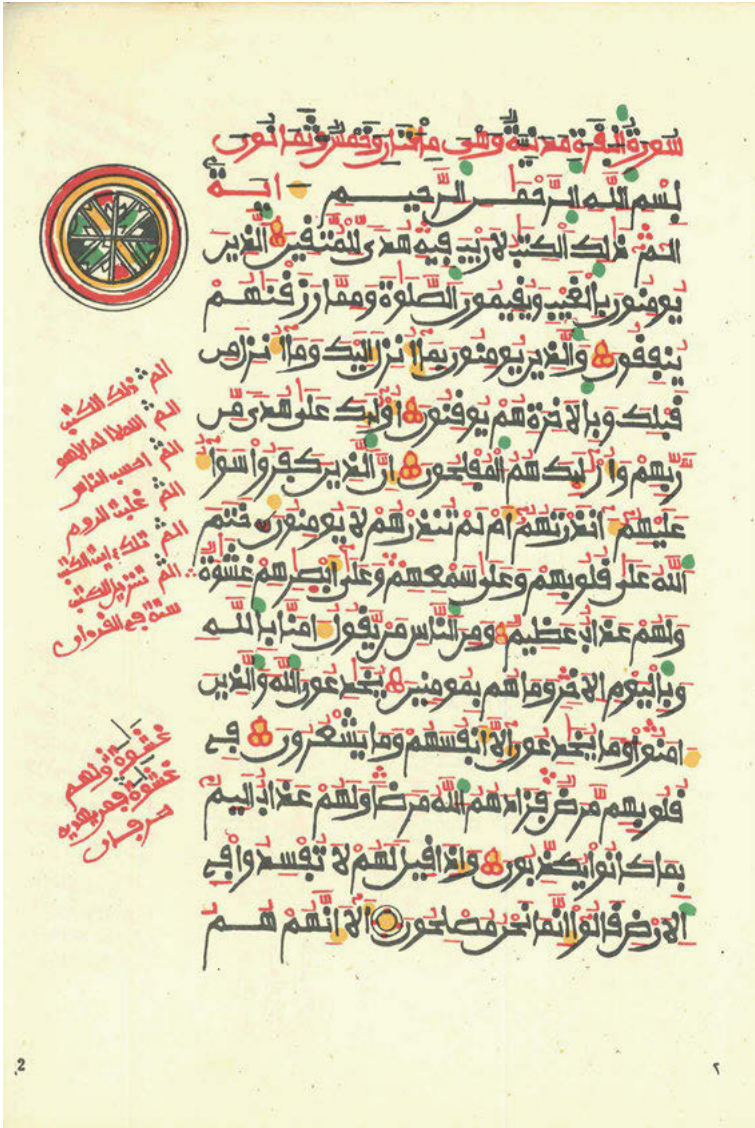 سورة البقرة مدنية وهى مائتان وخمس وثمانون
بسم الله الرحمن الرحيم اية
الم ذلك الكتب لا ريب فيه هدى للمتقين الذين
يومنون بالغيب ويقيمون الصلوة ومما رزقنهم
ينفقون والذين يومنون بما انزل اليك وما انزل من
قبلك وبالاخرة هم يوقنون اوليك على هدى من
ربهم واوليك هم المفلحون ان الذين كفروا سوا
عليهم انذرتهم ام لم تنذرهم لا يومنون ختم
الله على قلوبهم وعلى سمعهم وعلى ابصرهم غشوة
ولهم عذاب عظيم ومن الناس من يقول امنا بالله
وباليوم الاخر وما هم بمومنين يخدعون الله والذين
امنوا وما يخدعون الا انفسهم وما يشعرون في
قلوبهم مرض فزادهم الله مرضا ولهم عذاب اليم
بما كانوا يكذبون واذا قيل لهم لا تفسدوا في
الارض قالوا انما نحن مصلحون الا انهم هم
الم ذلك الكتب
الم الله لا اله الا هو
الم احسب الناس
الم غلبت الروم
الم تلك ايت الكتب
الم تنزيل الكتب
ستة في القروان
غشوة ولهم
غشوة فمن يهديه
حرفان
2
٢